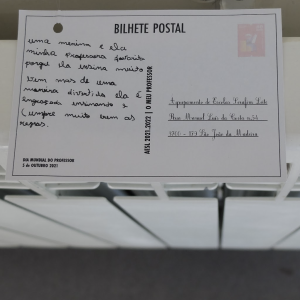 BILHETE POSTAL
uma menina e ela
minha professora favorita
porque ela ensina muito
bem mas de uma
maneira divertida ela é
engraçada ensinando e
cumpre muito bem as
regras.
DIA MUNDIAL DO PROFESSOR
5 de OUTUBRO 2021
AESL 2021.2022 | O MEU PROFESSOR
Agrupamento de Escolas Serafim Leite
Rua Manuel Luís da Costa
São João da Madeira